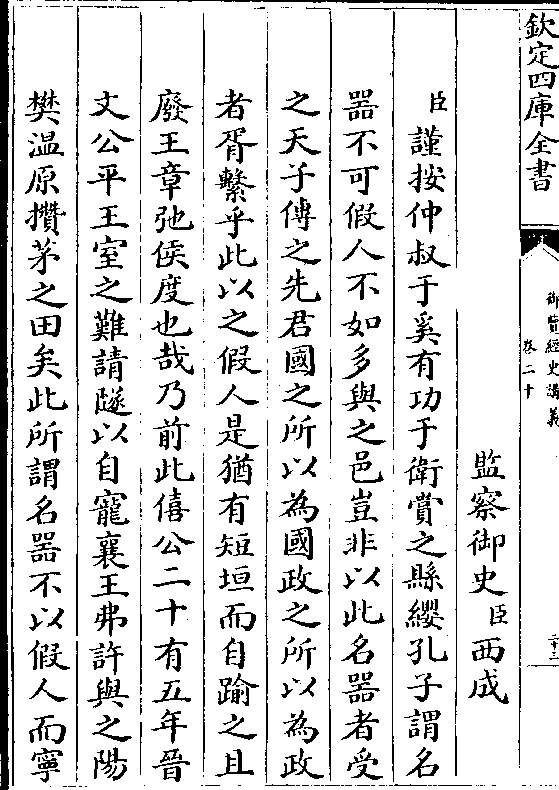 欽定四庫全書
御覽經史講義
卷二十
二十三
監察御史臣西成
臣謹按仲叔于奚有功于衛賞之縣纓孔子謂名
器不可假人不如多與之邑豈非以此名器者受
之天子傳之先君國之所以為國政之所以為政
者胥繫乎此以之假人是猶有短垣而自踰之且
廢王章弛侯度也哉乃前此僖公二十有五年晉
文公平王室之難請隧以自寵襄王弗許與之陽
樊温原攢茅之田矣此所謂名器不以假人而寧